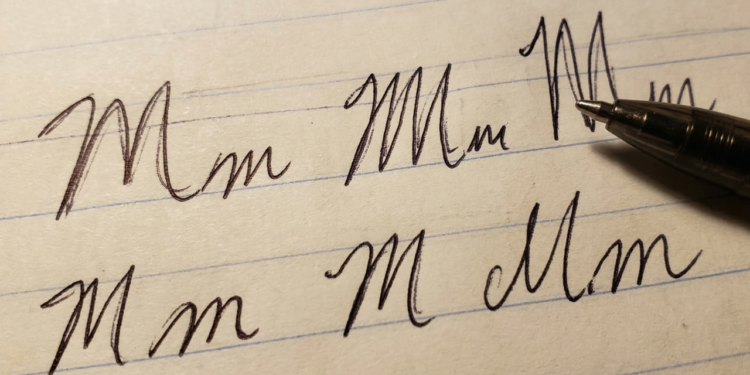 Mm Mm Mm
Mm M Mm